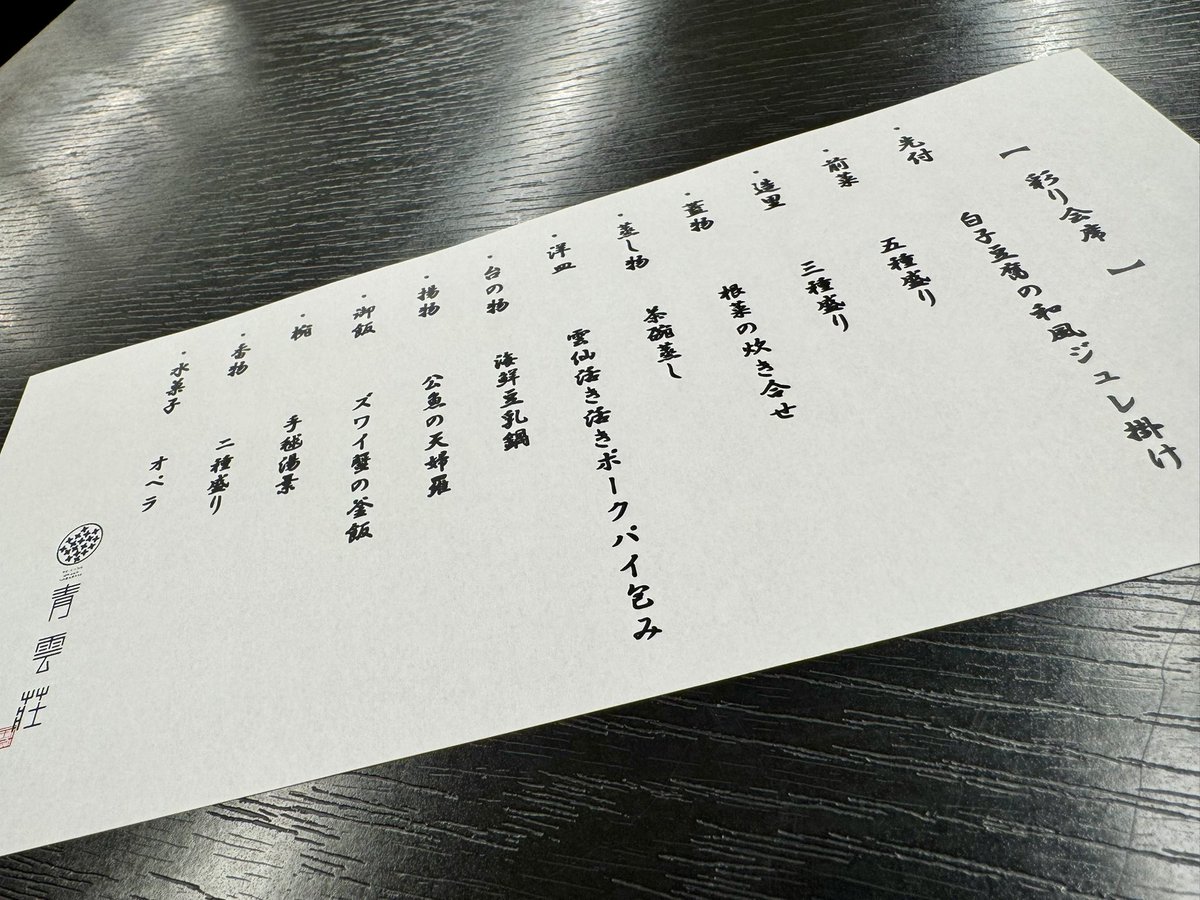 【彩り会席】
・先付
白子豆腐の和風ジュレ掛け
・前菜
五種盛り
・造里
三種盛り
・蓋物
根菜の炊き合せ
・蒸し物
茶碗蒸し
・洋皿
雲仙活き活きポークパイ包み
・台の物
海鮮豆乳鍋
・揚物
公魚の天婦羅
・御飯
ズワイ蟹の釜飯
・椀
手毬湯葉
・香物
二種盛り
・水菓子
オペラ
青雲荘